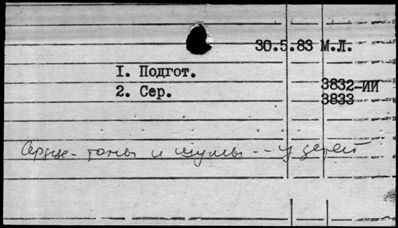 30.5.83 М.Л.
I. Подгот.
2. Сер. 3832-ИИ
3833
Сердце - тоны и шумы -- у детей